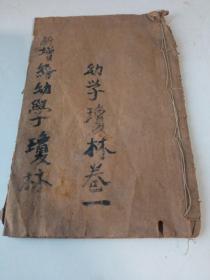 幼学瓊林卷一
新增繪幼學瓊林